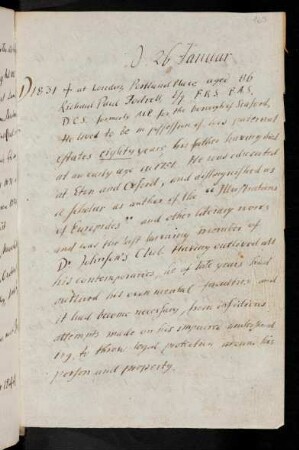 D. 26 Januar
1831 + at London, Portland Place aged 86
Richard Paul Jodrell Esq F.R.S. F.A.S.
D.C.L. formerly M.P. for the borough of Seaford,
He lived to be in possession of his paternal
estates eighty years his father having died
at an early age in 1751. He was educated
at Eton and Oxford, and distinguished as
a scholar as author of the "Illustrations
of Euripedes" and other literary works
and was the last surviving member of
Dr Johnson's Club. Having outlived all
his contemporaries, he of late years had
outlived his own mental faculties and
it had become necessary, from insidious
attempts made on his impaired understand
ing, to throw legal protection around his
person and property.